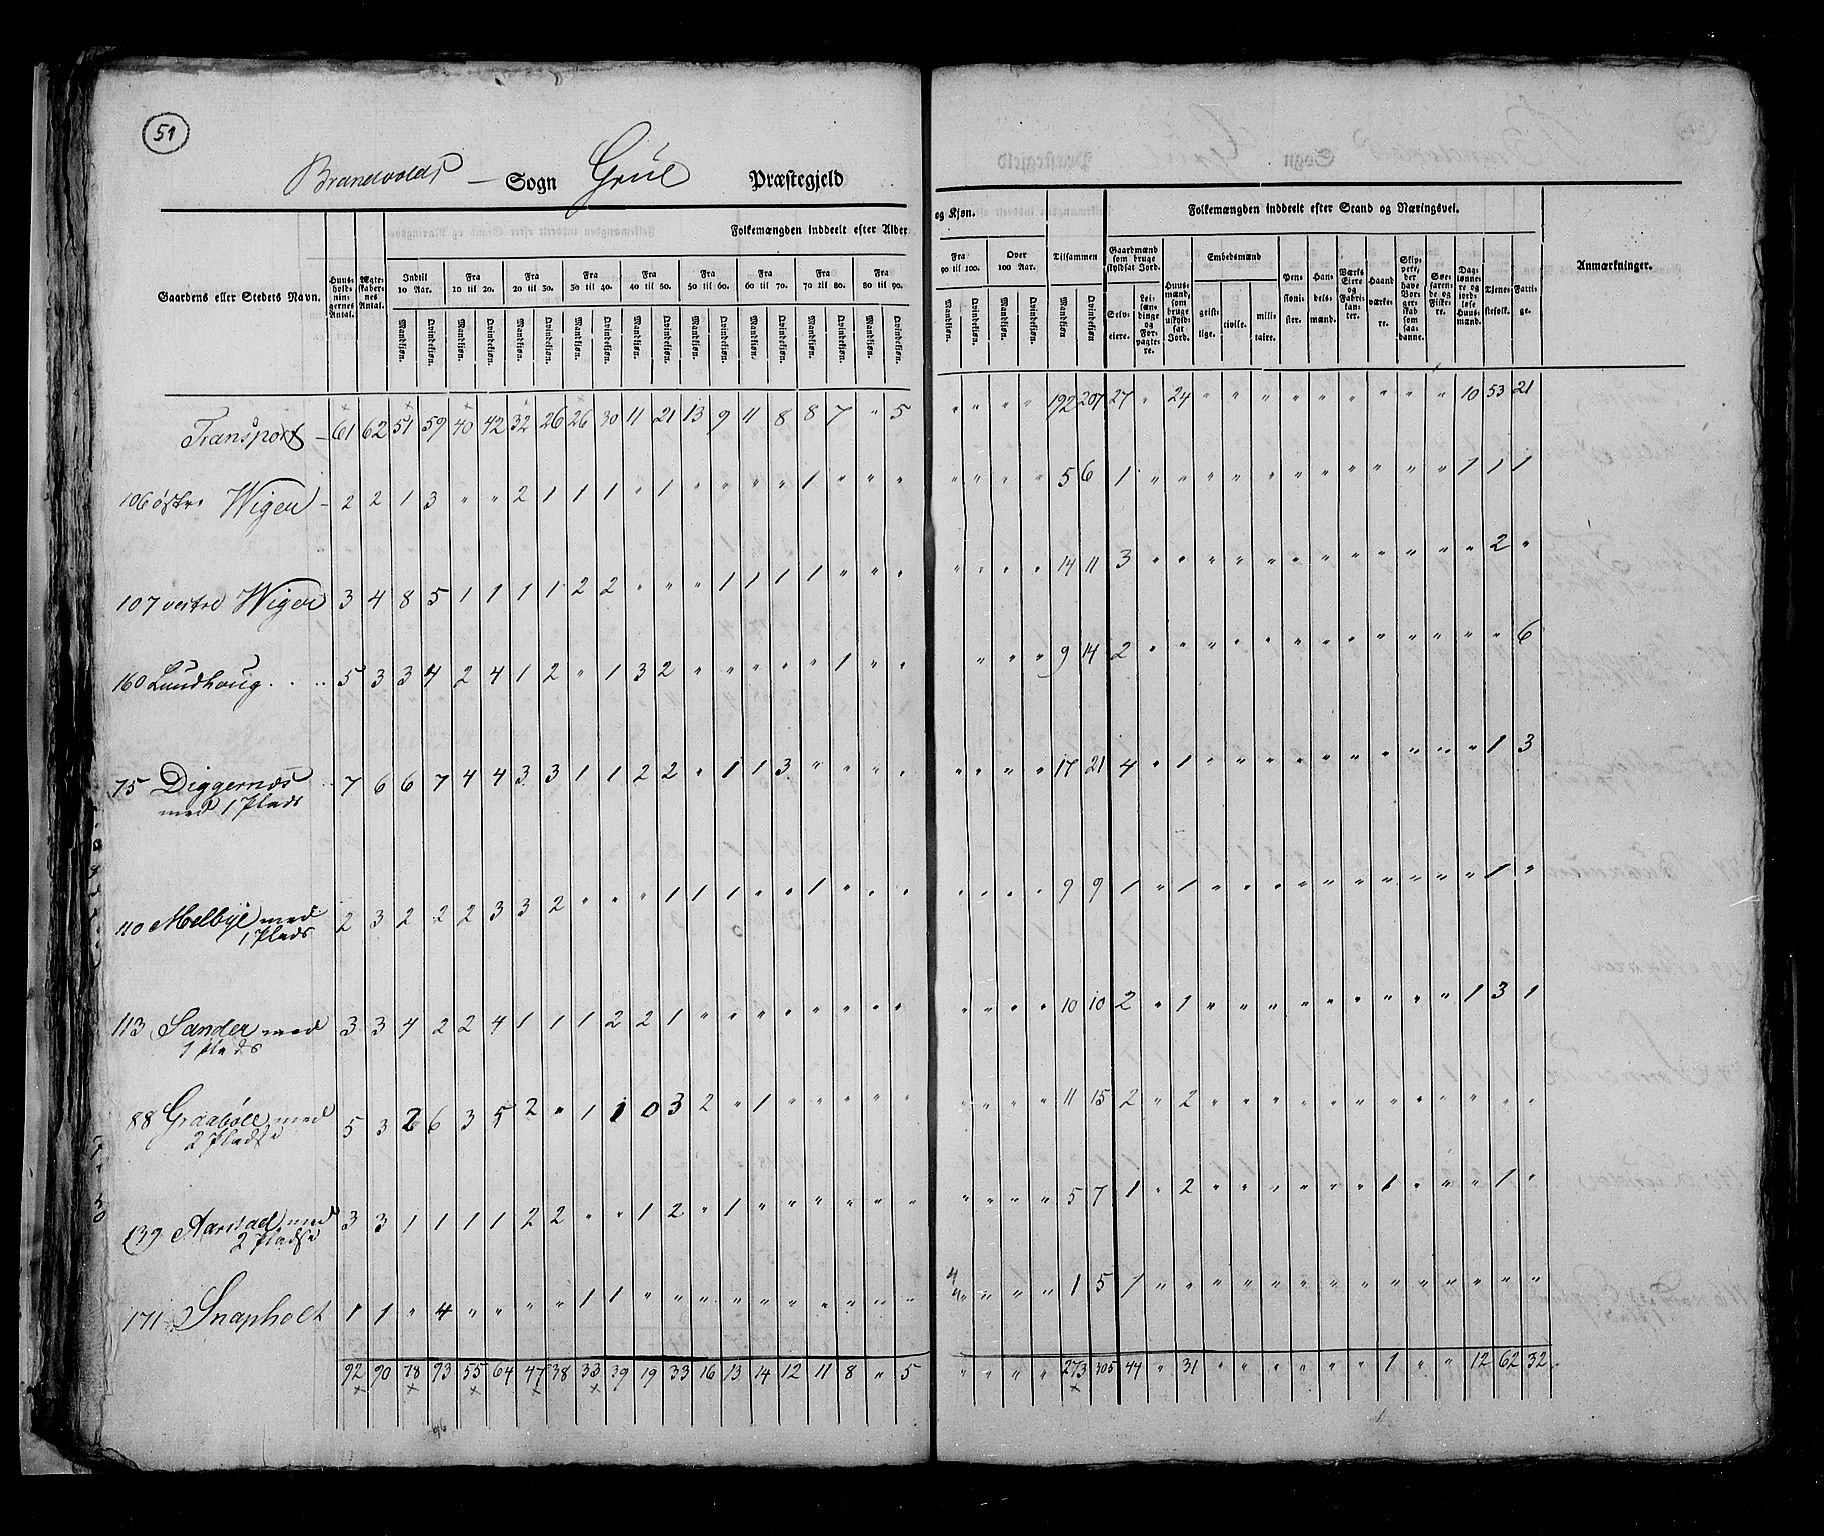 51
Brandvolds Sogn Grue Præstegjeld
Gaardens eller Stedets Navn.
Huusholdningernes Antal.
Ægteskabernes Antal.
Folkemængden inddeelt efter Alder
og Kjøn.
Folkemængden inddeelt efter Stand og Næringsvei.
Anmærkninger.
Indtil 10 Aar.
Fra 10 til 20.
Fra 20 til 30.
Fra 30 til 40.
Fra 40 til 50.
Fra 50 til 60.
Fra 60 til 70.
Fra 70 til 80.
Fra 80 til 90.
Fra 90 til 100.
Over 100 Aar.
Tilsammen
Mandkjøn. Qvindekjøn. Mandkjøn. Qvindekjøn. Mandkjøn. Qvindekjøn. Mandkjøn. Qvindekjøn. Mandkjøn. Qvindekjøn. Mandkjøn. Qvindekjøn. Mandkjøn. Qvindekjøn. Mandkjøn. Qvindekjøn. Mandkjøn. Qvindekjøn. Mandkjøn. Qvindekjøn. Mandkjøn. Qvindekjøn. Mandkjøn Qvindekjøn
Gaardmænd som bruge skyldsat Jord.
Selveiere.
Leilændinge og Forpagtere.
Huusmænd, som bruge uskyldsat Jord.
Embedsmænd
geistlige. civile. militaire.
Pensionister.
Handelsmænd.
Værks Eiere og Fabrikanter.
Haandværkere.
Skippere, der have Borgerskab som saadanne.
Søefarende og Fiskere.
Daglønnere og jordløse Huusmænd.
Tjenestefolk.
Fattige.
Transport 61 62 51 59 40 42 32 26 26 30 11 21 13 9 11 8 8 7 " 5 " " " " 192 207 27 " 24 " " " " " " " " " 10 53 21
106 østre Wigen 2 2 1 3 " " 2 1 1 1 " 1 " " " " 1 " " " " " " " 5 6 1 " " " " " " " " " " " 1 1 1
107 vestre Wigen 3 4 8 5 1 1 1 1 2 2 " " " 1 1 1 1 " " " " " " " 14 11 3 " " " " " " " " " " " " 2 "
160 Lundhoug 5 3 3 4 2 4 1 2 " 1 3 2 " " " " " 1 " " " " " 9 14 2 " " " " " " " " " " " " " 6
75 Diggernæs med 1 Plads 7 6 6 7 4 4 3 3 1 1 2 2 " 1 1 3 " " " " " " " " 17 21 4 " 1 " " " " " " " " " " 1 3
110 Melbye med 1 Plads 2 3 2 2 2 3 3 2 " " " 1 1 1 " " 1 " " " " " " " 9 9 1 " 1 " " " " " " " " " " 1 "
113 Sander med 1 Plads 3 3 4 2 2 4 1 1 1 2 2 1 " " " " " " " " " " " " 10 10 2 " 1 " " " " " " " " " 1 3 1
88 Graaböll med 2 Pladse 5 3 2 6 3 5 2 " 1 1 0 3 2 " 1 " " " " " " " " " 11 15 2 " 2 " " " " " " " " " " " "
139 Aarstad med 2 Pladse 3 3 1 1 1 1 2 2 " " 1 2 " 1 " " " " " " " " " " 5 7 1 " 2 " " " " " " 1 " " " 1 "
171 Snapholt 1 1 " 4 " " " " 1 1 " " " " " " " " " " " " " " 1 5 1 " " " " " " " " " " " " " "
92 90 78 93 55 64 47 38 33 39 19 33 16 13 14 12 11 8 " 5 " " " " 273 305 44 " 31 " " " " " " 1 " " 12 62 32